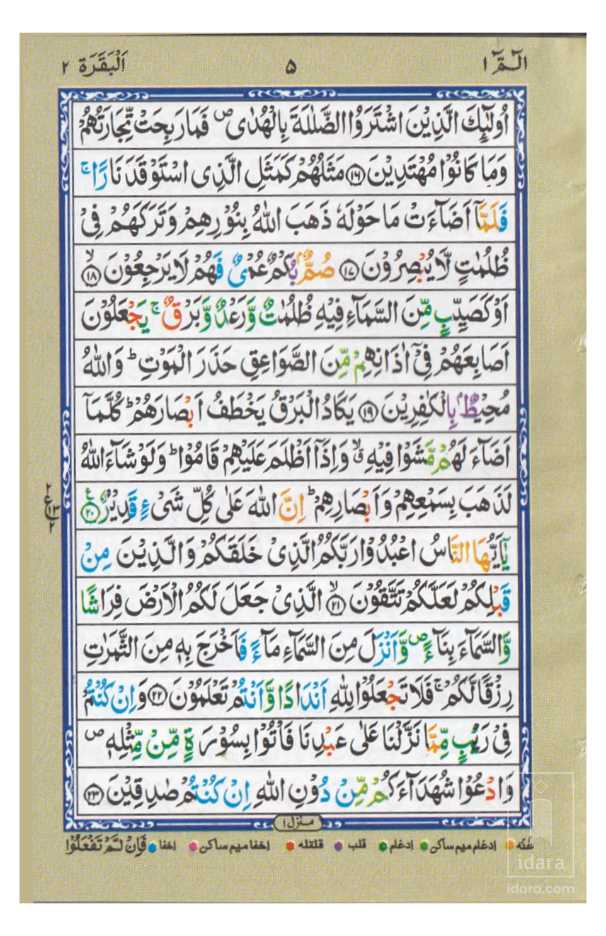 الٓمّٓ ١ ٥ اَلْبَقَرَة ٢
اُولٰٓئِكَ الَّذِيْنَ اشْتَرَوُا الضَّلٰلَةَ بِالْهُدٰى ۪ فَمَا رَبِحَتْ تِّجَارَتُهُمْ
وَمَا كَانُوْا مُهْتَدِيْنَ ﴿١٦﴾ مَثَلُهُمْ كَمَثَلِ الَّذِى اسْتَوْقَدَ نَارًا ۚ
فَلَمَّاۤ اَضَآءَتْ مَا حَوْلَهٗ ذَهَبَ اللّٰهُ بِنُوْرِهِمْ وَتَرَكَهُمْ فِىْ
ظُلُمٰتٍ لَّا يُبْصِرُوْنَ ﴿١٧﴾ صُمٌّۢ بُكْمٌ عُمْىٌ فَهُمْ لَا يَرْجِعُوْنَ ۙ﴿١٨﴾
اَوْ كَصَيِّبٍ مِّنَ السَّمَآءِ فِيْهِ ظُلُمٰتٌ وَّرَعْدٌ وَّبَرْقٌ ۚ يَجْعَلُوْنَ
اَصَابِعَهُمْ فِىْۤ اٰذَانِهِمْ مِّنَ الصَّوَاعِقِ حَذَرَ الْمَوْتِ ؕ وَاللّٰهُ
مُحِيْطٌۢ بِالْكٰفِرِيْنَ ﴿١٩﴾ يَكَادُ الْبَرْقُ يَخْطَفُ اَبْصَارَهُمْ ؕ كُلَّمَاۤ
اَضَآءَ لَهُمْ مَّشَوْا فِيْهِ ۙ وَاِذَاۤ اَظْلَمَ عَلَيْهِمْ قَامُوْا ؕ وَلَوْ شَآءَ اللّٰهُ
لَذَهَبَ بِسَمْعِهِمْ وَاَبْصَارِهِمْ ؕ اِنَّ اللّٰهَ عَلٰى كُلِّ شَىْءٍ قَدِيْرٌ ﴿٢٠﴾
٢ ع ١٣ ٢
يٰۤاَيُّهَا النَّاسُ اعْبُدُوْا رَبَّكُمُ الَّذِىْ خَلَقَكُمْ وَالَّذِيْنَ مِنْ
قَبْلِكُمْ لَعَلَّكُمْ تَتَّقُوْنَ ۙ﴿٢١﴾ الَّذِىْ جَعَلَ لَكُمُ الْاَرْضَ فِرَاشًا
وَّالسَّمَآءَ بِنَآءً ۪ وَّاَنْزَلَ مِنَ السَّمَآءِ مَآءً فَاَخْرَجَ بِهٖ مِنَ الثَّمَرٰتِ
رِزْقًا لَّكُمْ ۚ فَلَا تَجْعَلُوْا لِلّٰهِ اَنْدَادًا وَّاَنْتُمْ تَعْلَمُوْنَ ﴿٢٢﴾ وَاِنْ كُنْتُمْ
فِىْ رَيْبٍ مِّمَّا نَزَّلْنَا عَلٰى عَبْدِنَا فَاْتُوْا بِسُوْرَةٍ مِّنْ مِّثْلِهٖ ۪
وَادْعُوْا شُهَدَآءَكُمْ مِّنْ دُوْنِ اللّٰهِ اِنْ كُنْتُمْ صٰدِقِيْنَ ﴿٢٣﴾
منزل ١
غنّه ادغام میم ساکن ادغام قلب قلقله اخفا میم ساکن اخفا فَاِنْ لَّمْ تَفْعَلُوْا
idara
idara.com